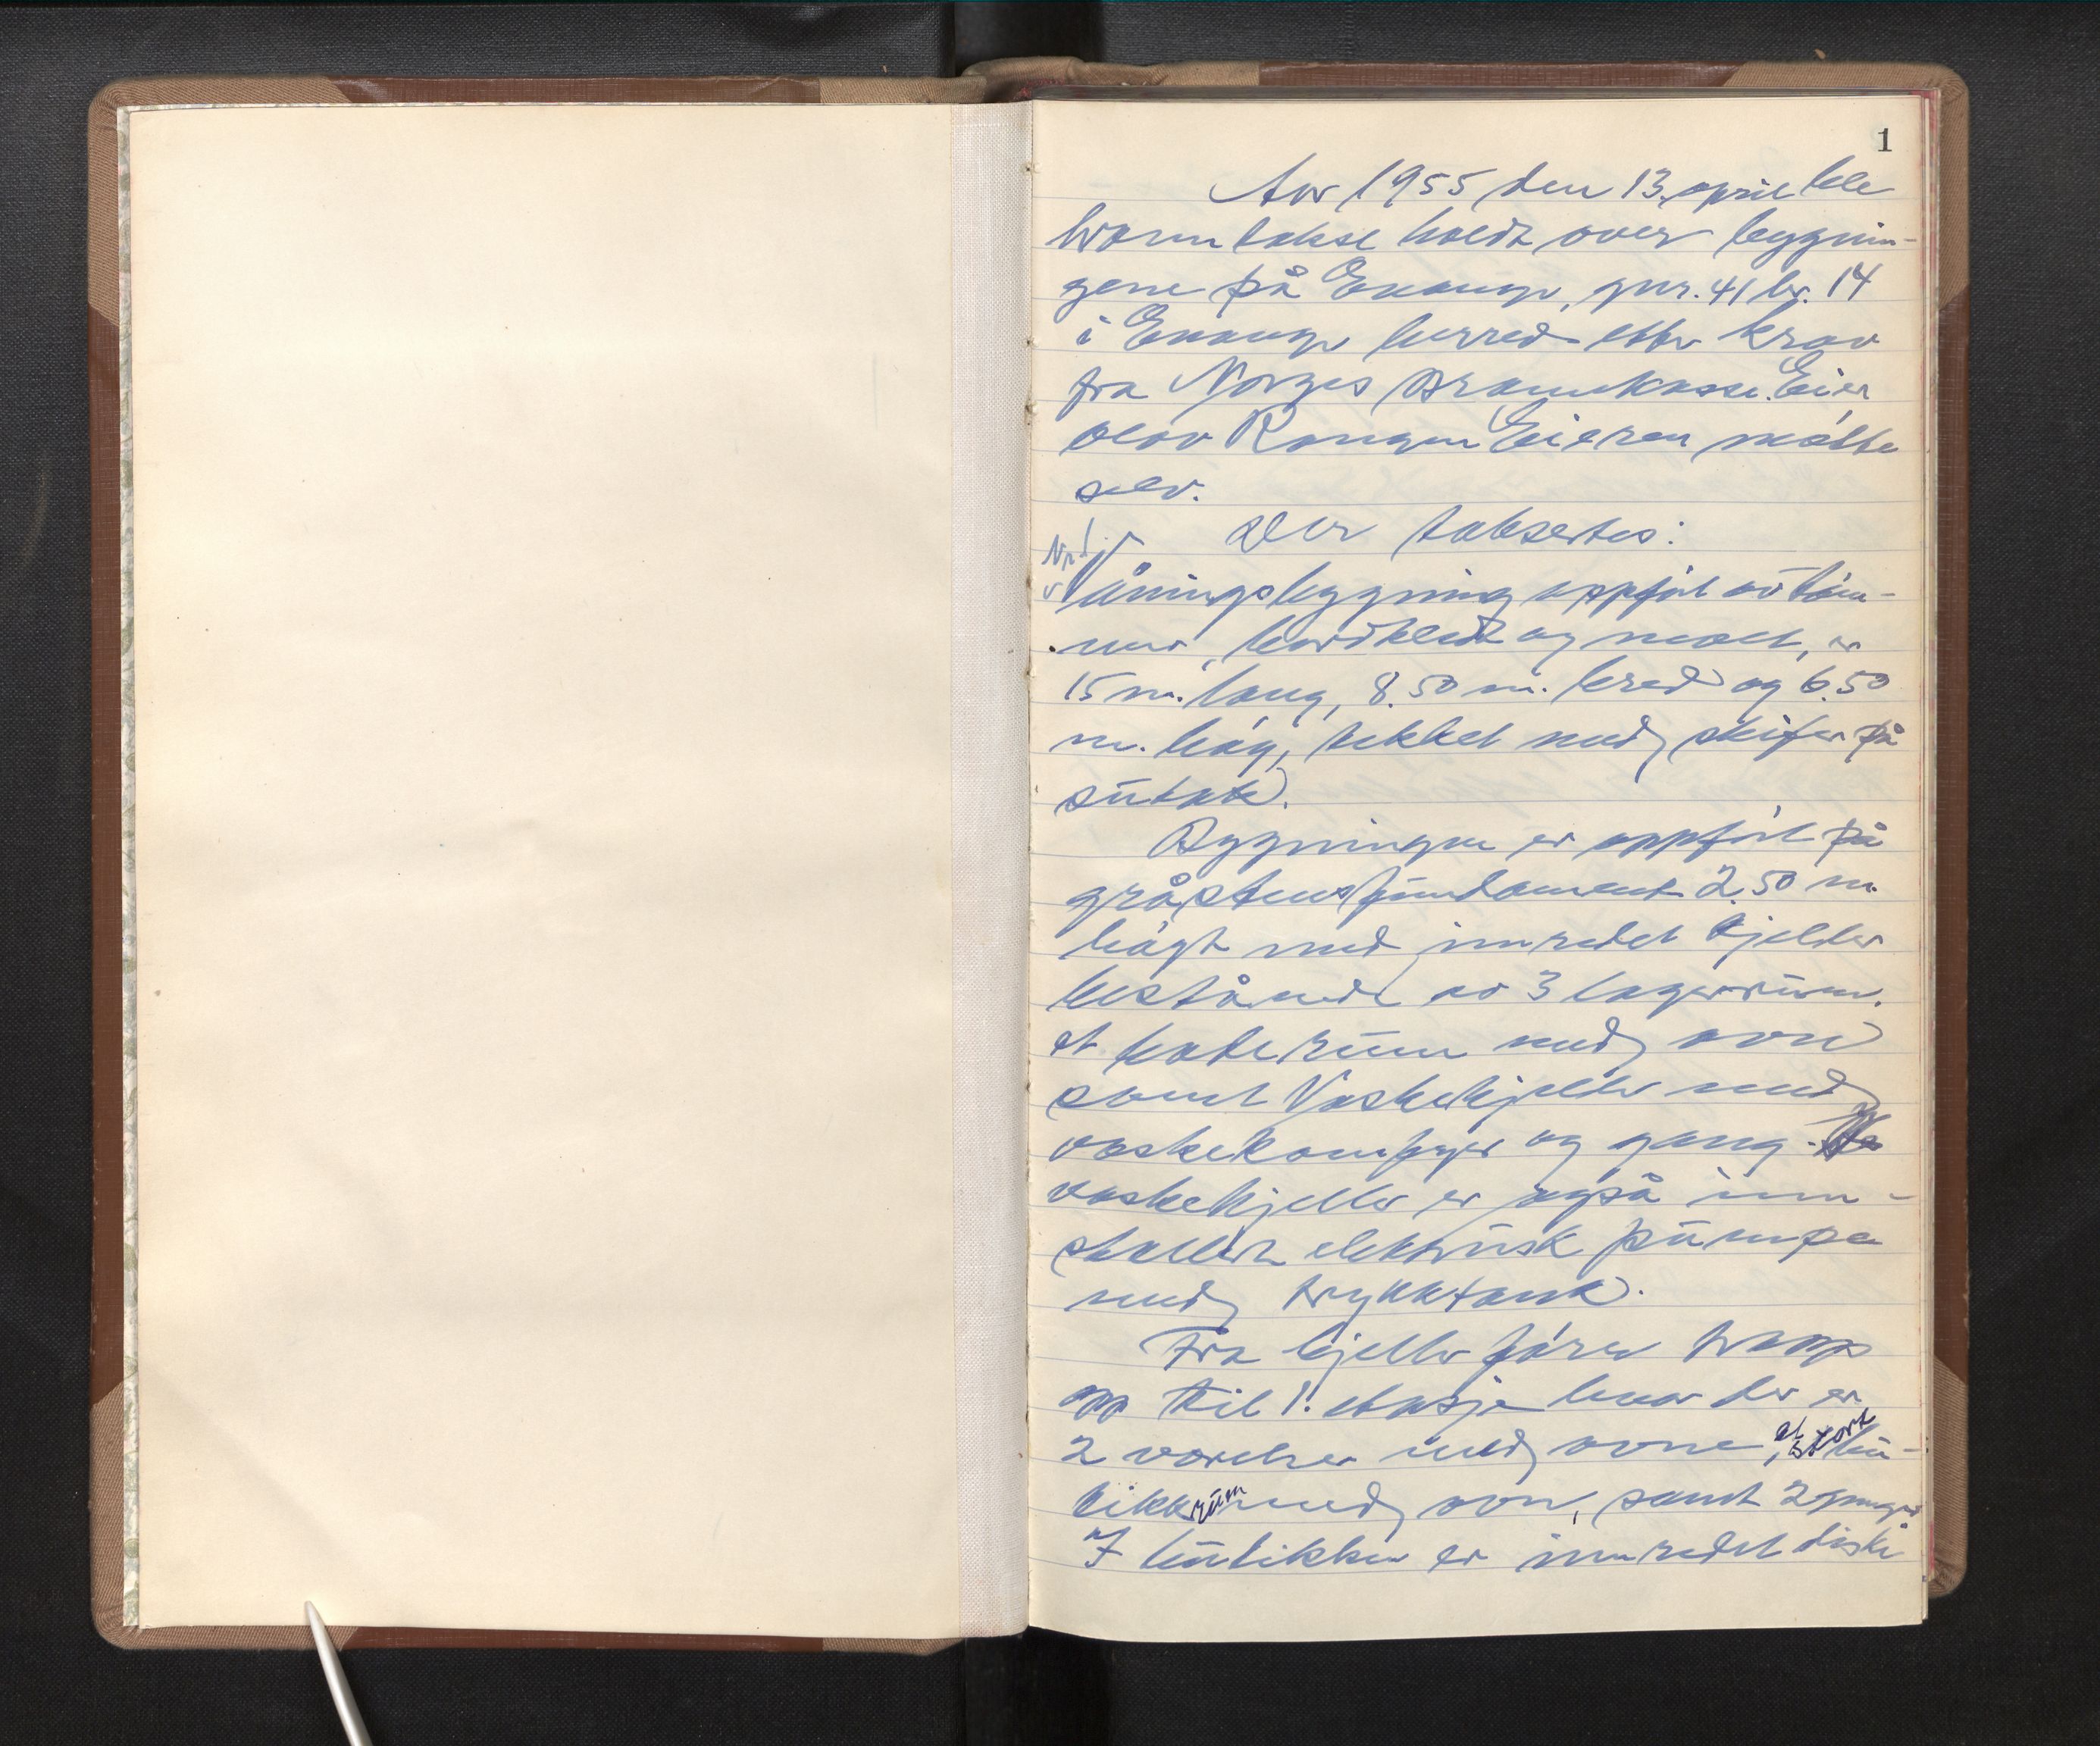 1
Aar 1955 den 13. april ble
branntakst holdt over bygnin-
gene på Evanger, gnr. 41 br. 14
i Evanger herred etter krav
fra Norges Brannkasse. Eier
Olav Rongen Eieren møtte
selv.
Der takseртes:
Nr 1
Våningsbygning oppført av tøm-
mer, bordkledt og malt, er
15 m. lang, 8.50 m. bred og 6.50
m. høg, tekket med skifer på
sutak.
Bygningen er oppført på
gråstensfundament 2.50 m.
høgt med innredet kjeller
bestående av 3 lagerrum.
et baderum med ovn
samt Vaskekjeller med
vaskekomfyr og gang. I
vaskekjeller er også inn-
stallert elektrisk pumpe
med trykktank.
Fra kjeller fører trapp
opp til 1. etasje hvor der er
2 værelser med ovne, et stort bu-
tikkrum med ovn, samt 2 ganger
I butikken er innredet diske